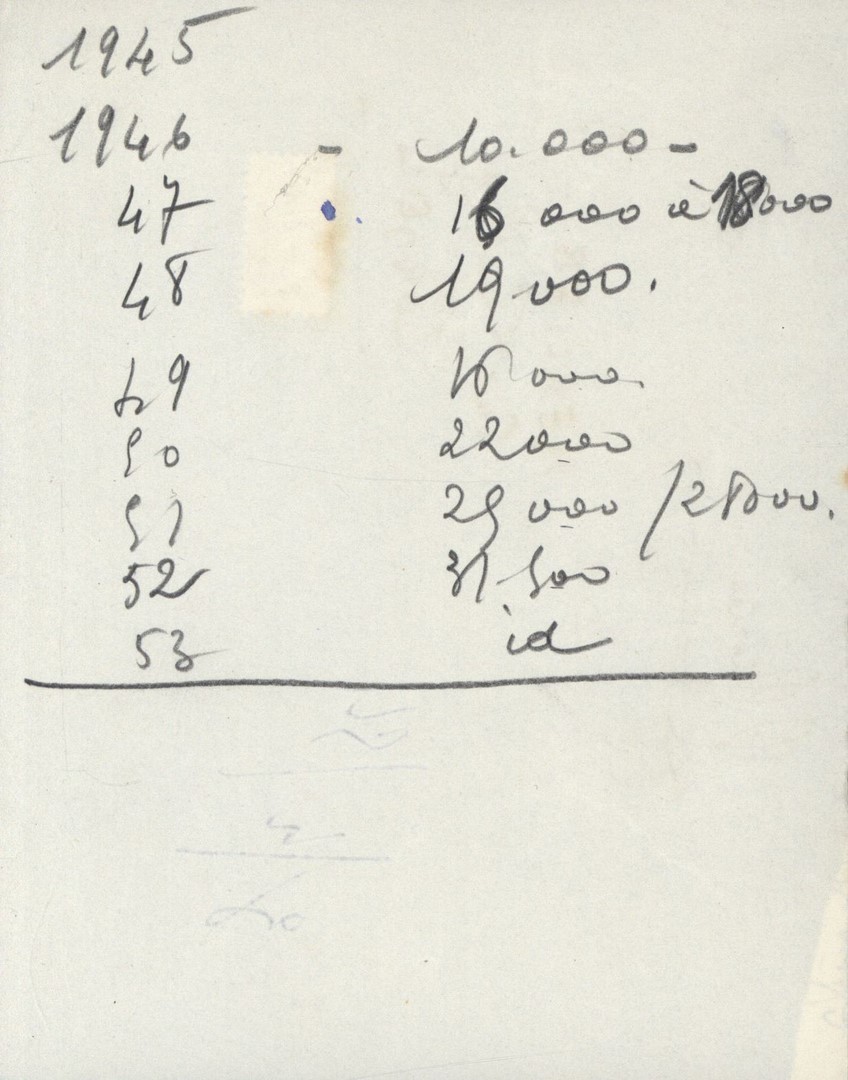 1945
1946 - 10.000 -
47 16 000 à 18000
48 19000.
49 16000.
50 22000
51 25000 / 28000.
52 31500
53 id